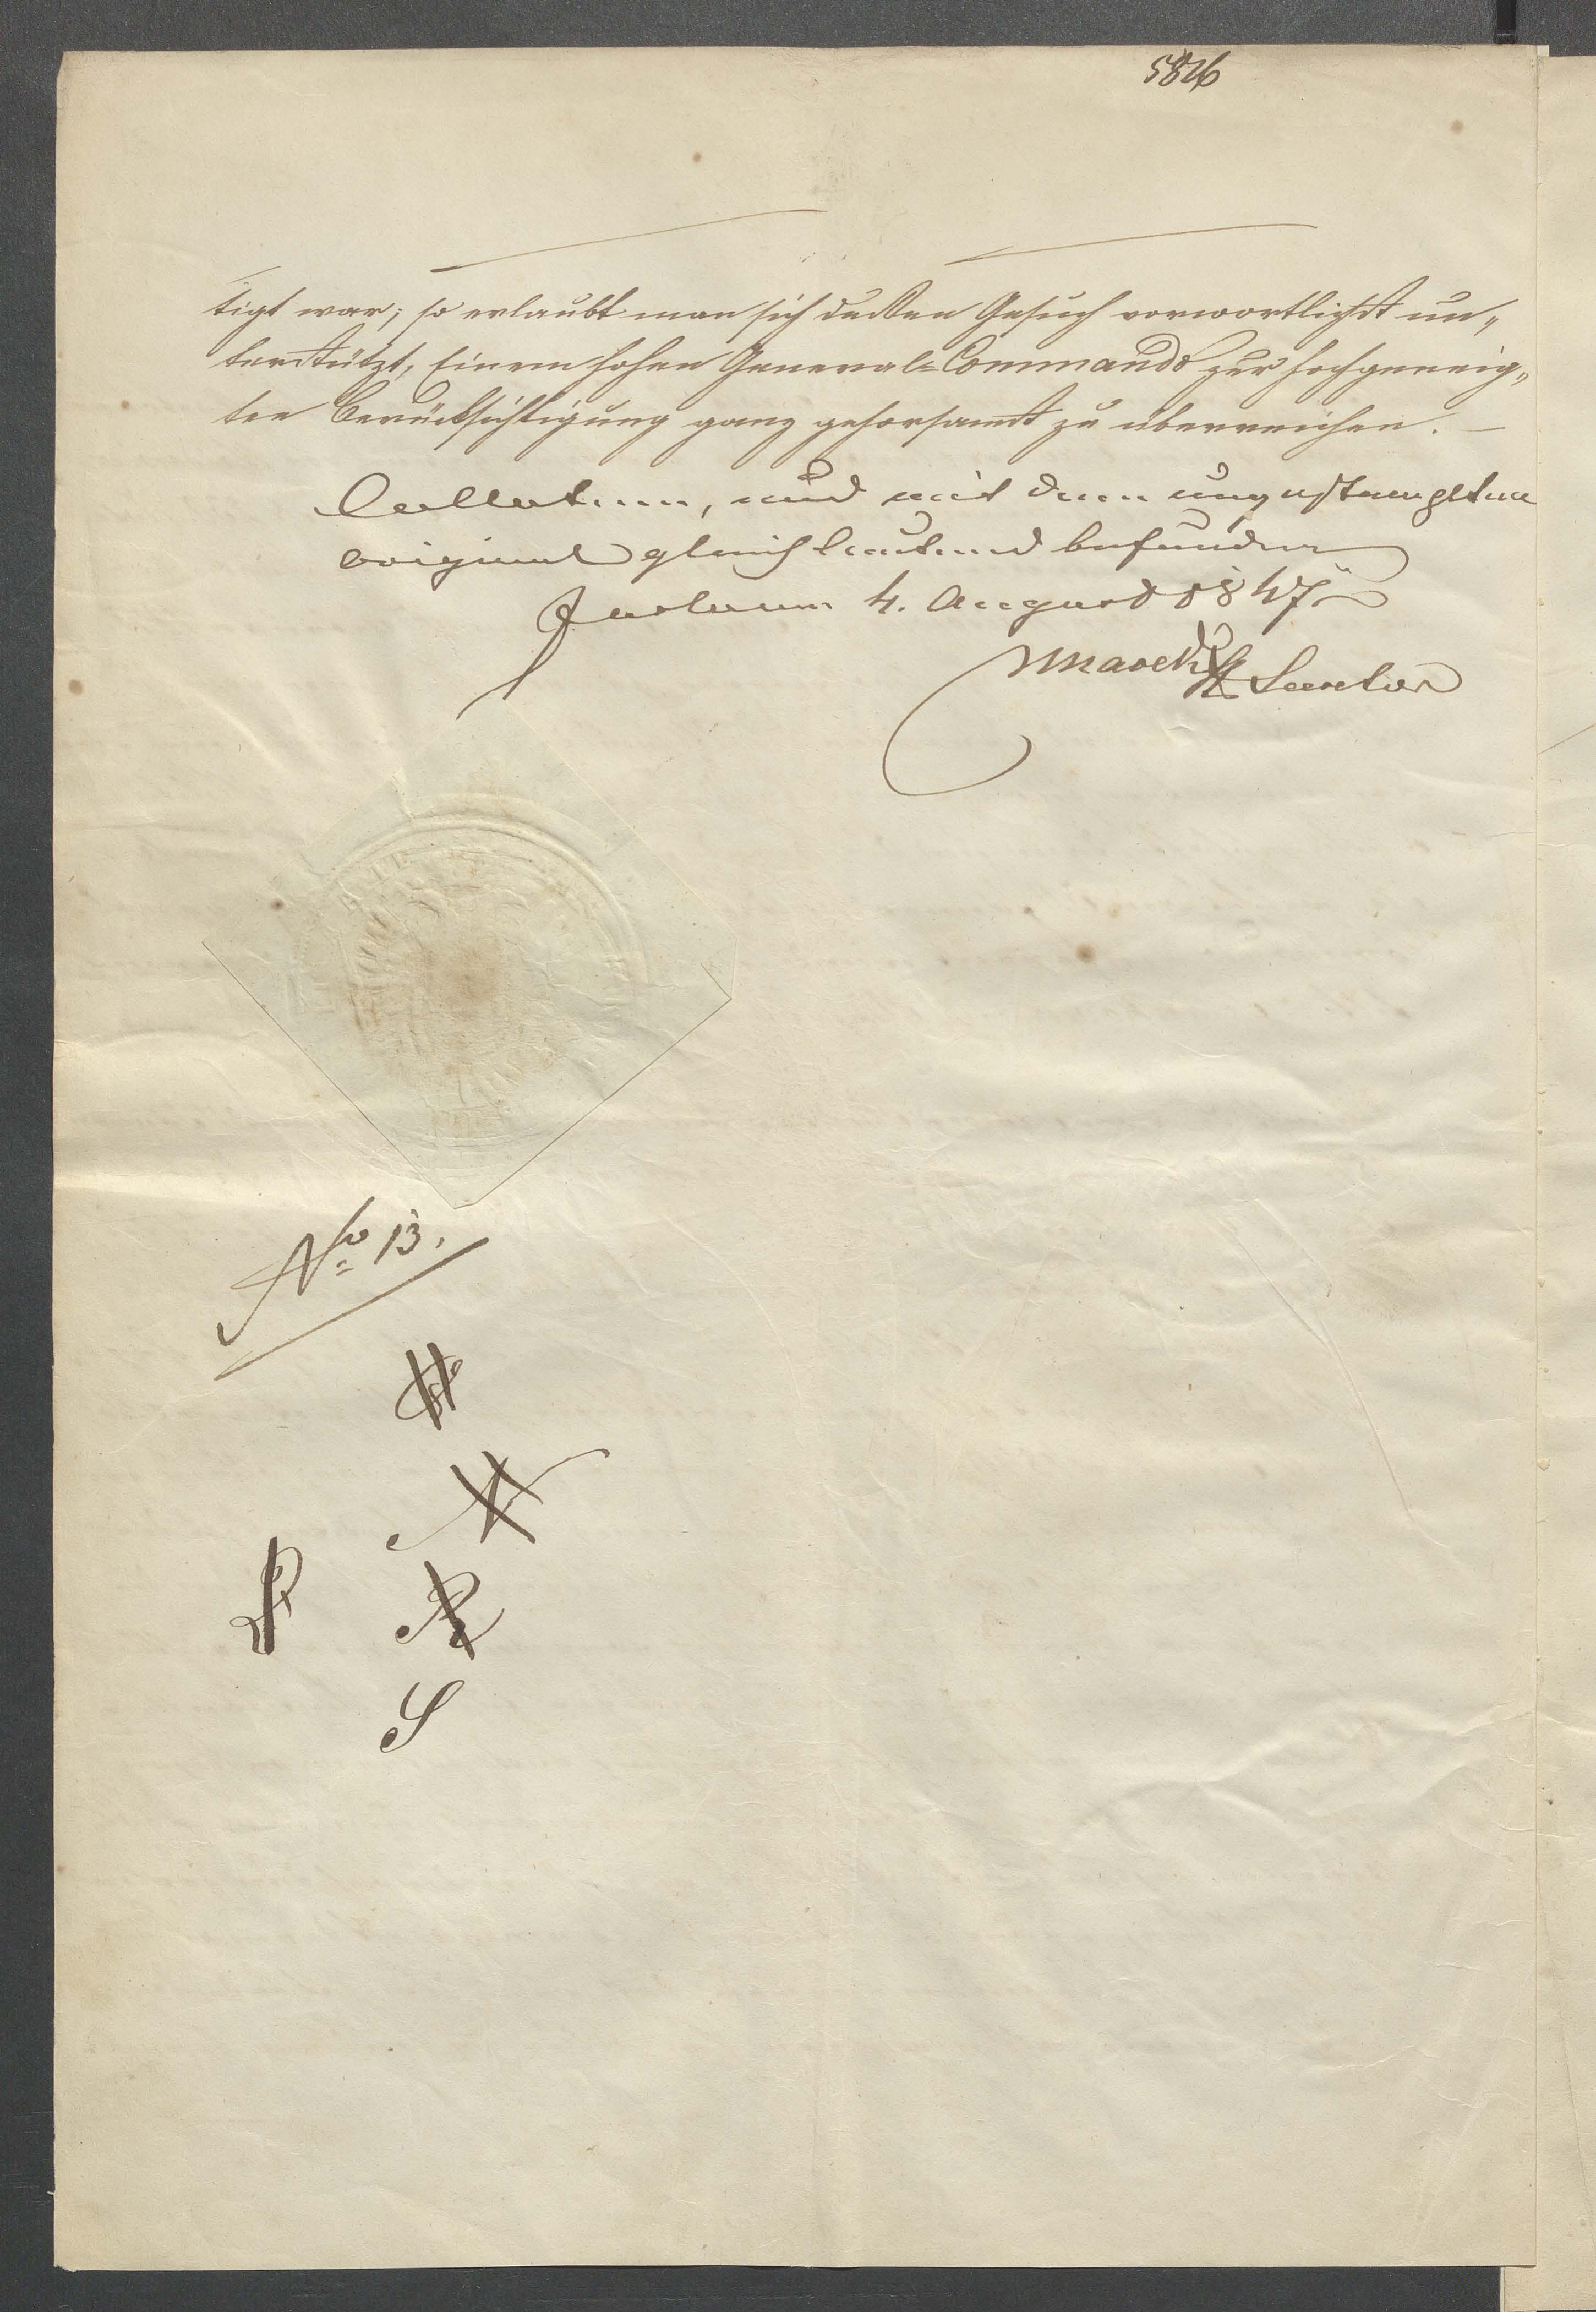 5826
tigt war; so erlaubt man sich dessen Gesuch vorwortlichst un„
terstützt, Einem hohen General=Commando zur hochgeneig„
ten Berücksichtigung ganz gehorsamst zu überreichen. —
Collatum, und mit dem ungestempelten
Original gleichlautend befunden
4. August 1847
Marek
No 13.
S